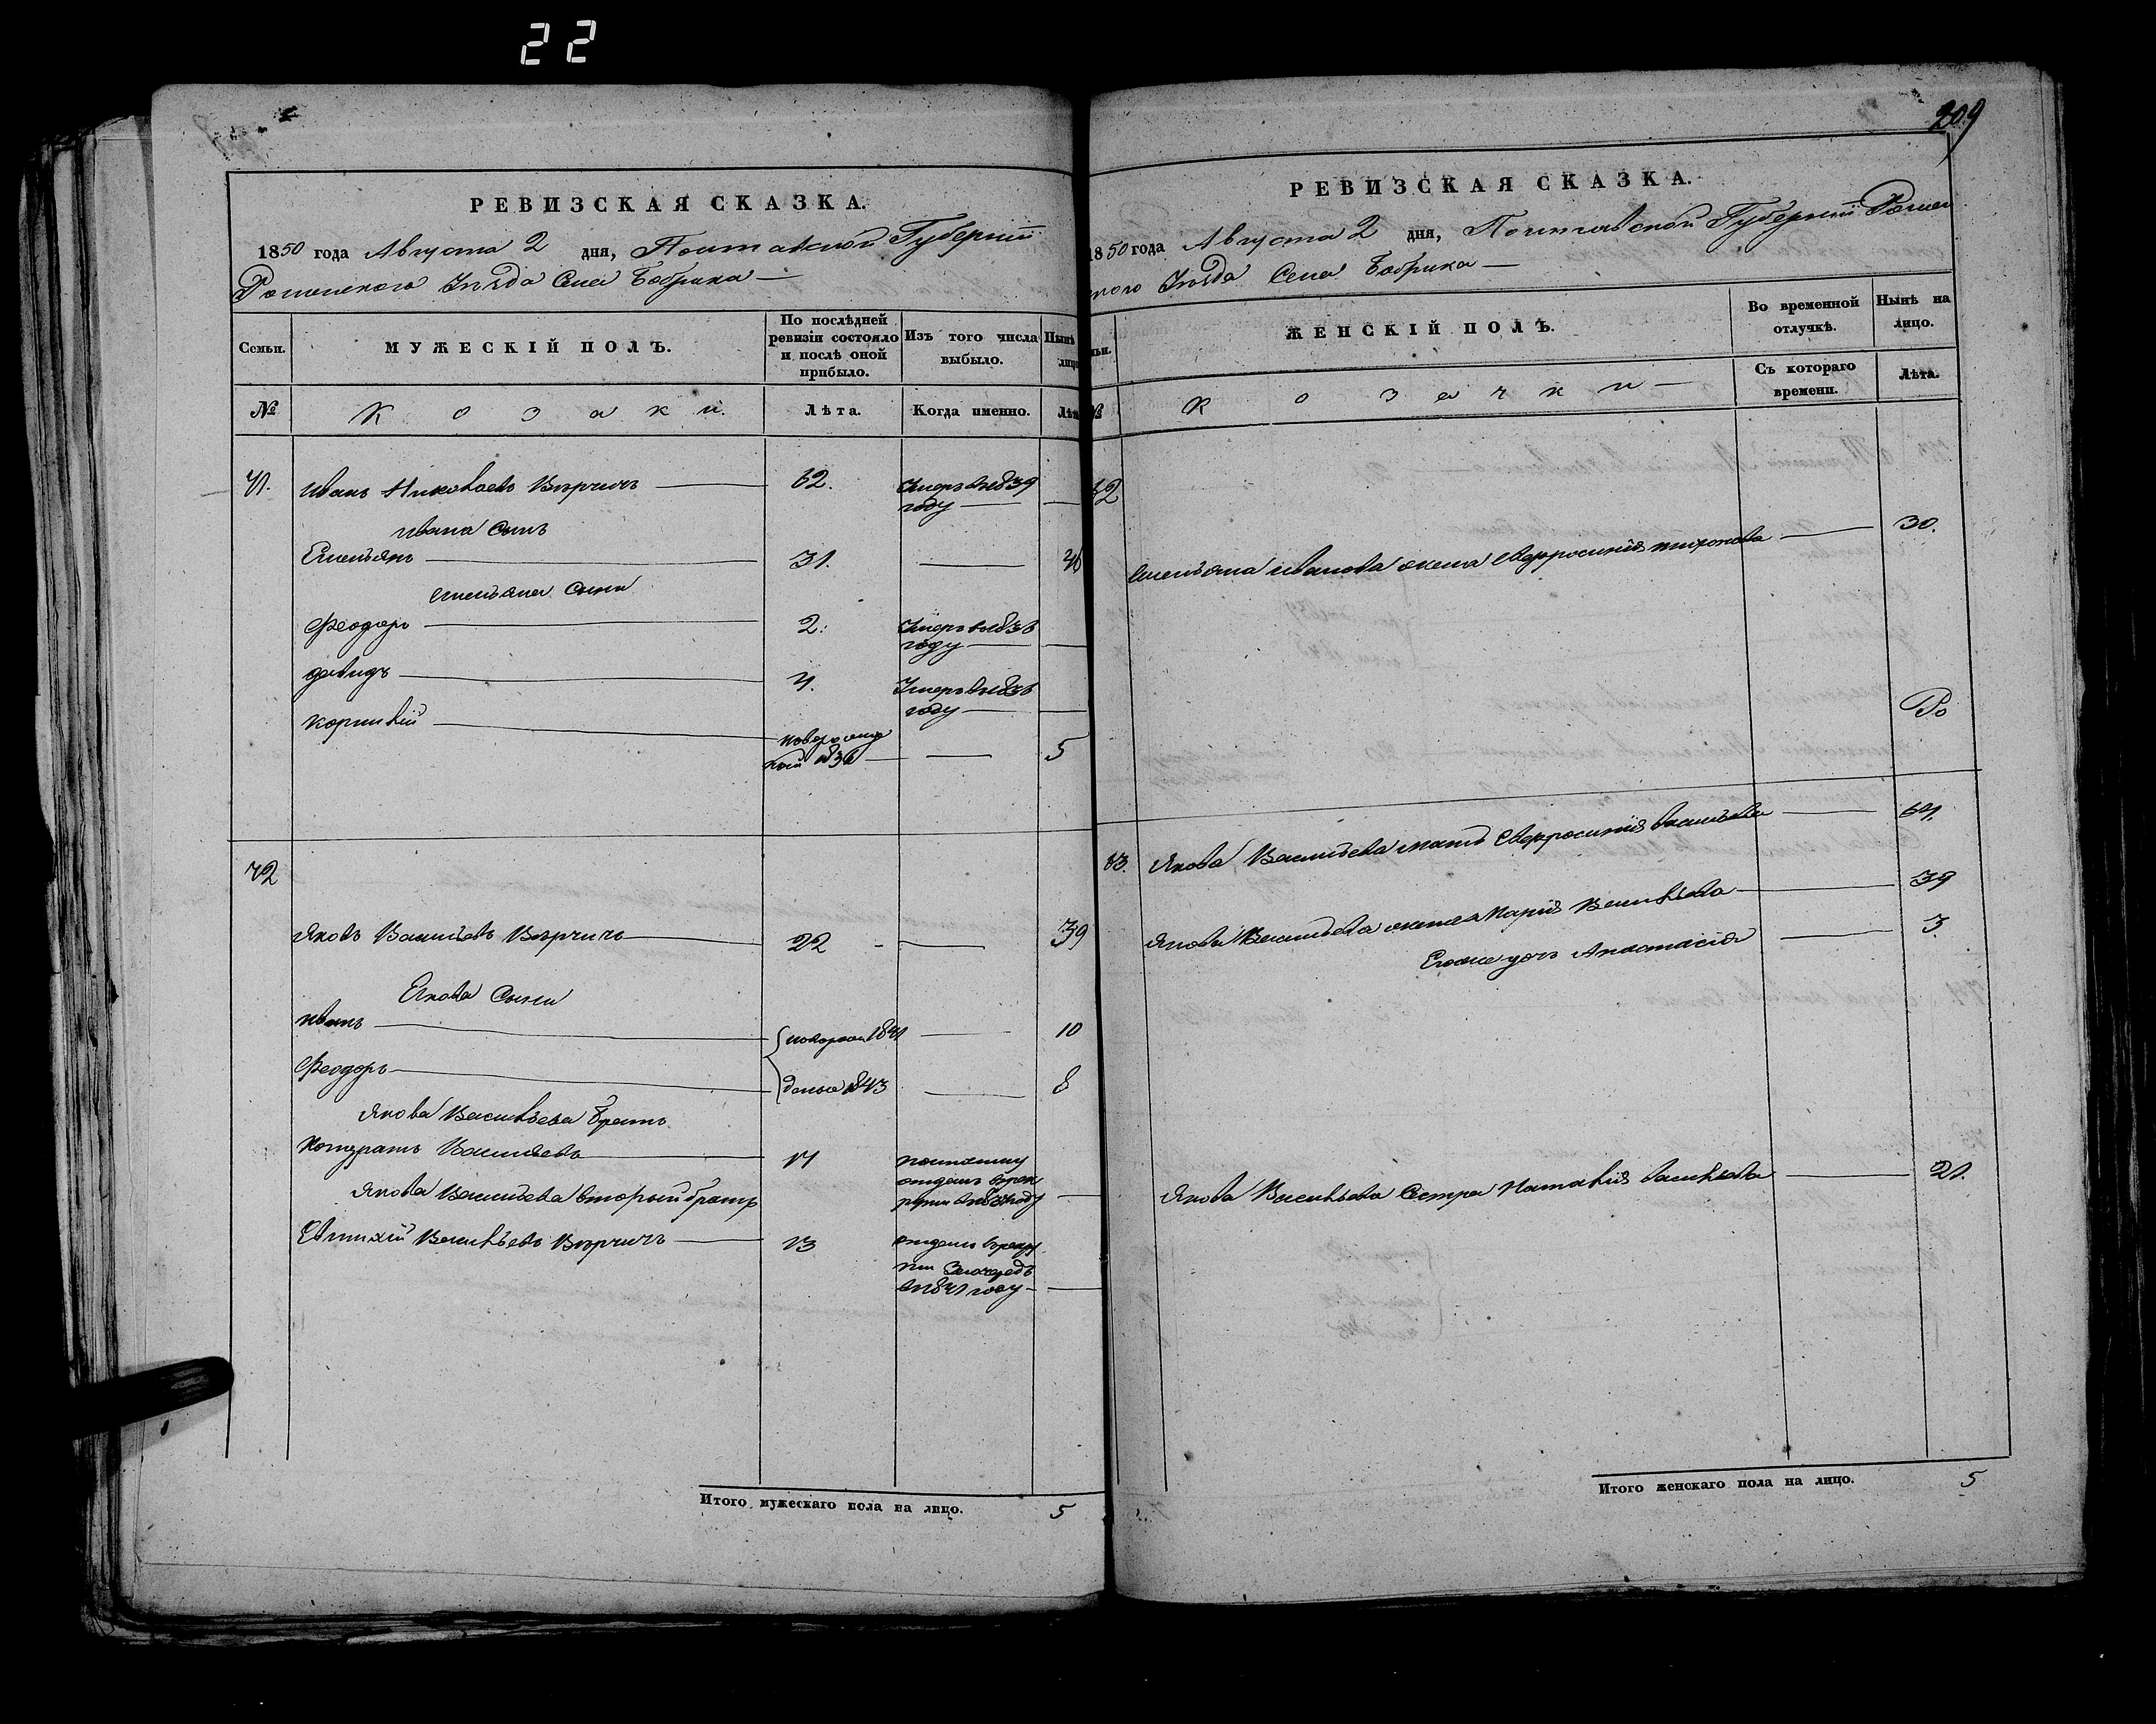 22
РЕВИЗСКАЯ СКАЗКА.
1850 года Августа 2 дня, Полтавской Губернии
Роменского Уѣзда Села Бобрика —
Семьи.
МУЖЕСКІЙ ПОЛЪ.
По послѣдней ревизіи состояло и послѣ оной прибыло.
Изъ того числа выбыло.
Нынѣ
лицо
№
Козаки.
Лѣта.
Когда именно.
Иванъ Николаевъ Вѣрчичъ — 62. Умеръ в 1839
году —
Ивана Сынъ
Емельянъ — 31. —
Емельяна Сыни
Феодоръ — 2. Умеръ
году —
Давидъ — Умеръ
году —
Корнилій —
5
72
Яковъ Васильевъ Вѣрчичъ — 22 — 39
Якова Сыни
Иванъ — 1841 — 10
Феодоръ — 1843 — 8
Якова Васильева братъ
Кондратъ Васильевъ —
отданъ
Якова Васильева вторый братъ
Евтихій Васильевъ Вѣрчичъ — 13 отданъ
году —
Итого мужескаго пола на лицо. 5
209
РЕВИЗСКАЯ СКАЗКА.
1850 года Августа 2 дня, Полтавской Губерніи Ромен
ского Уѣзда Села Бобрика —
ЖЕНСКІЙ ПОЛЪ.
Во временной отлучкѣ.
Нынѣ на лицо.
Козачки —
Съ котораго времени.
Лѣта.
Емельяна Иванова жена Евфросинія — 30.
Якова Васильева мать Евфросинія Васильева —
Якова Васильева жена Марія Васильева — 39
Егоже дочь Анастасія — 3.
Якова Васильева Сестра Наталія Васильева — 21.
Итого женскаго пола на лицо. 5